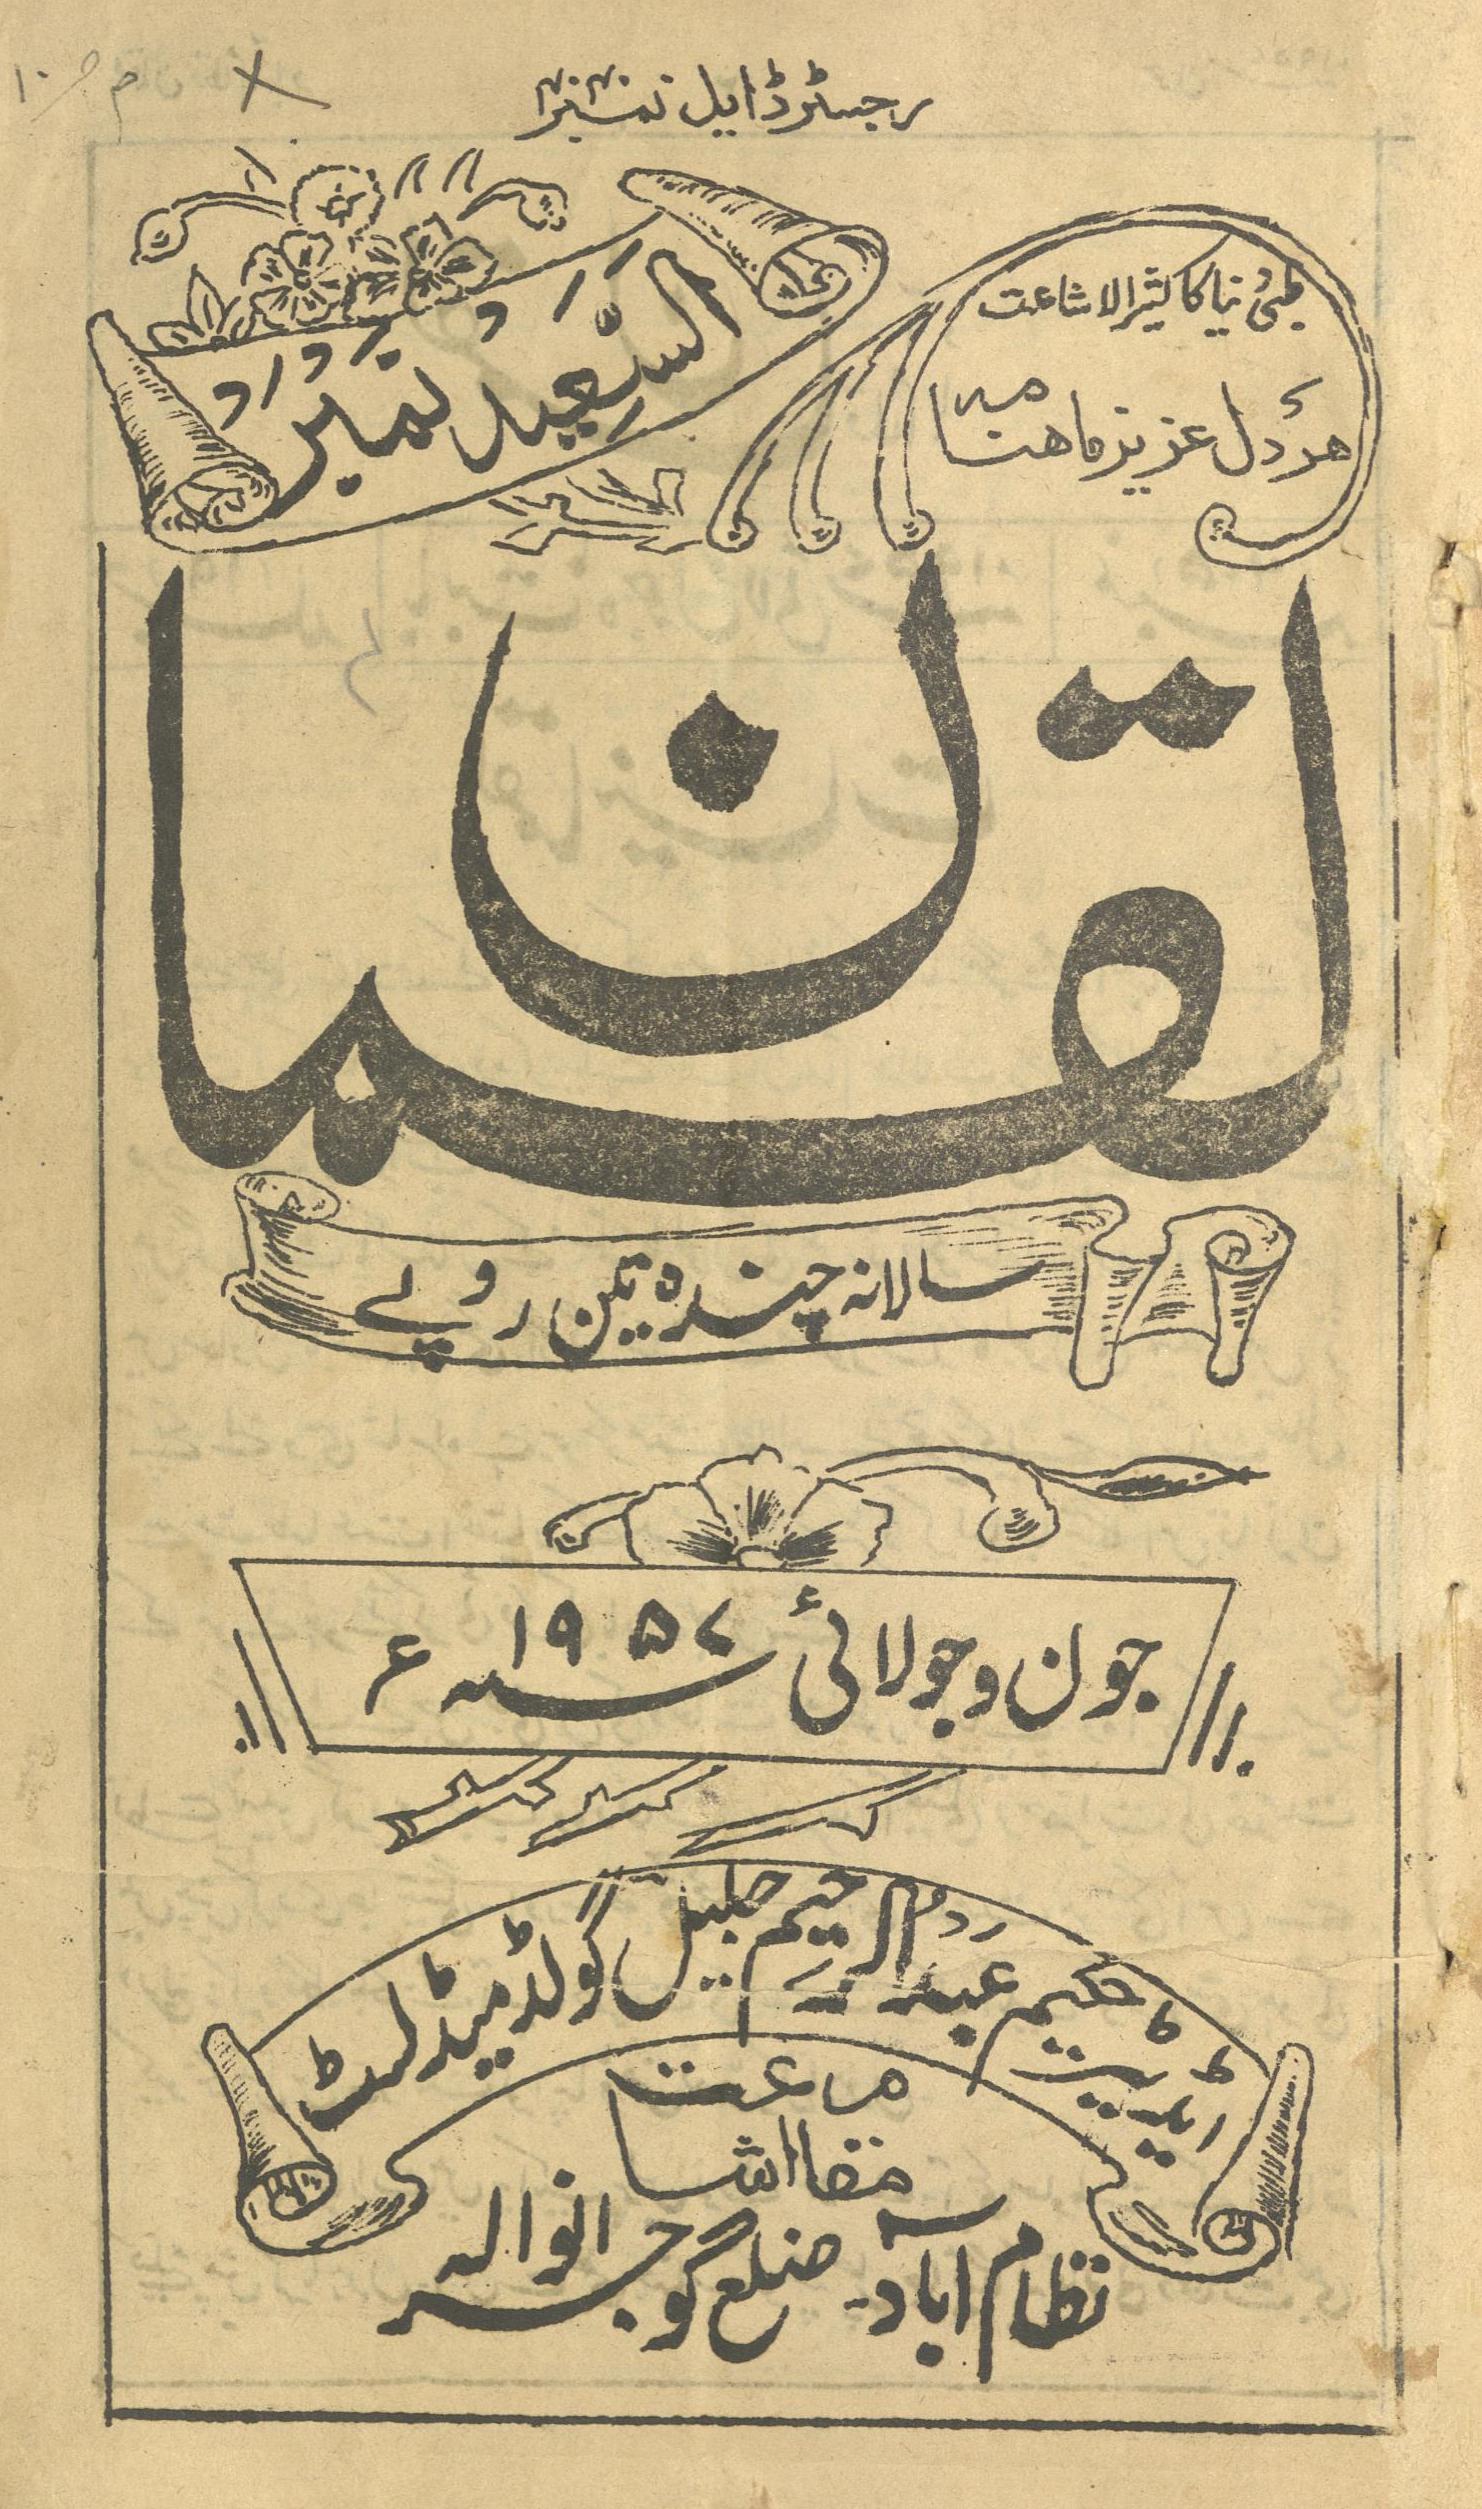 رجسٹرڈ ایل نمبر
طبی دنیا کا کثیر الاشاعت
ہر دل عزیز ماہنامہ
السعید نمبر
لقمان
سالانہ چندہ تین روپے
جون و جولائی ۱۹۵۷ء
ایڈیٹر حکیم عبدالرحیم جلیل گولڈ میڈلسٹ
مقام اشاعت
نظام آباد۔ ضلع گوجرانوالہ